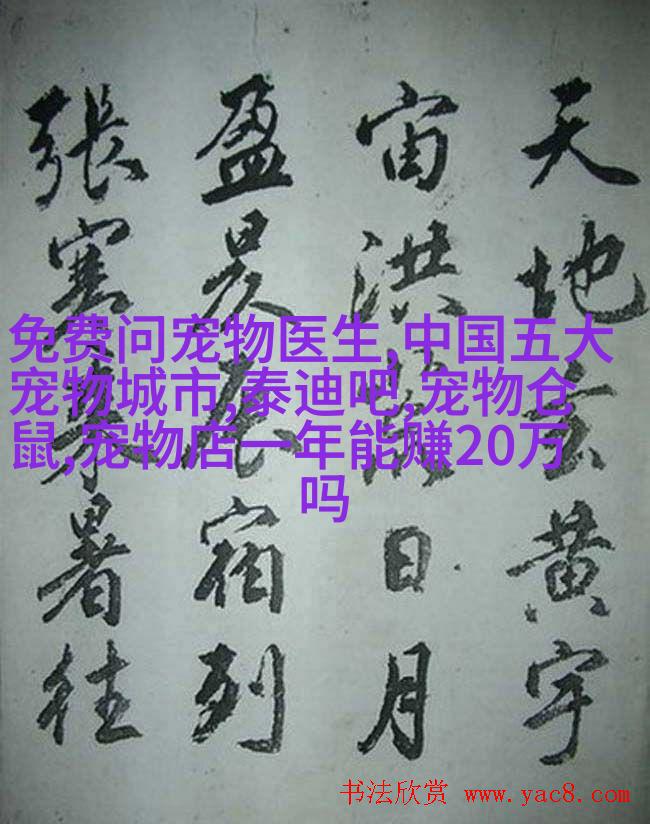 天地玄黄宇
宙洪荒日月
盈昃辰宿列
張寒来暑往
免费问宠物医生,中国五大
宠物城市,泰迪吧,宠物仓
鼠,宠物店一年能赚20万
吗
书法欣赏 www.yac8.com